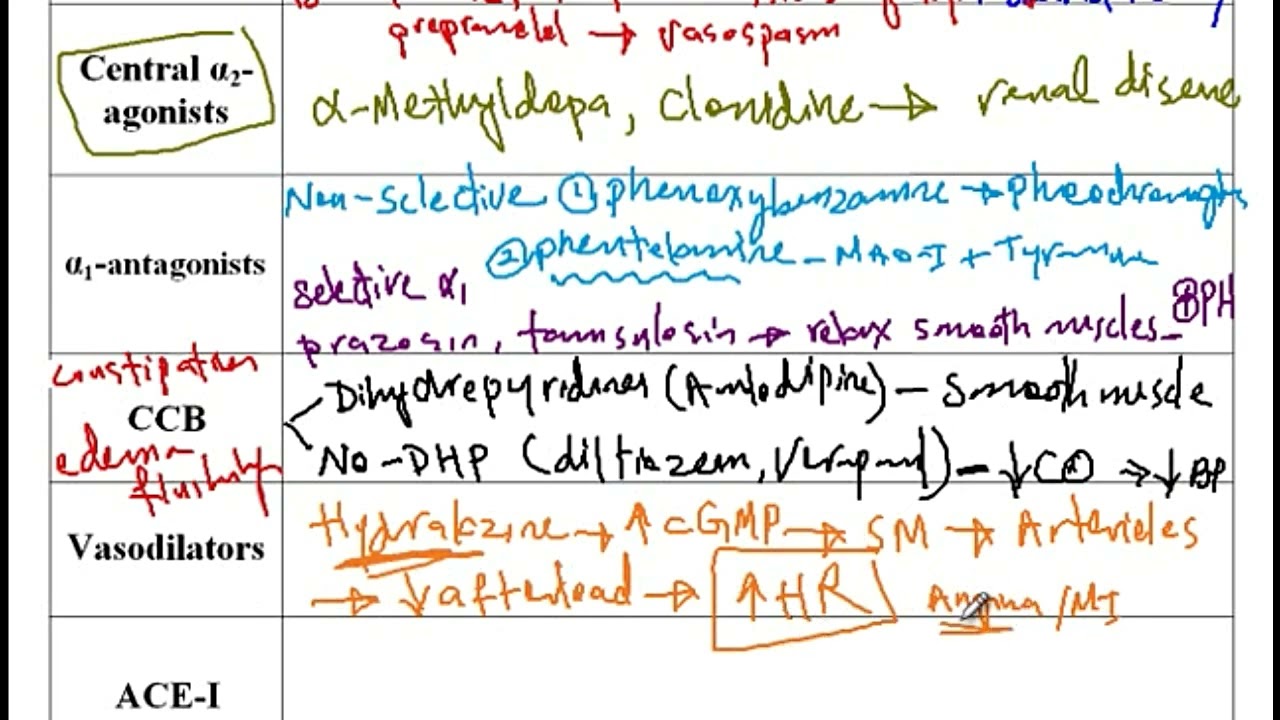 propranolol → vasospasm
Central α₂-
agonists
α-Methyldopa, Clonidine → renal disease
Non-Selective ① phenoxybenzamine → pheochromocyt
② phentolamine - MAO-I + Tyramine
α₁-antagonists
selective α₁
prazosin, tamsulosin → relax smooth muscles - BPH
constipation
CCB
edema
flushing
Dihydropyridines (Amlodipine) - Smooth muscle
No-DHP (diltiazem, Verapamil) - ↓CO ⇒ ↓ BP
Vasodilators
Hydralazine → ↑cGMP → SM → Arterioles
→ ↓ afterload → ↑HR Angina /MI
ACE-I